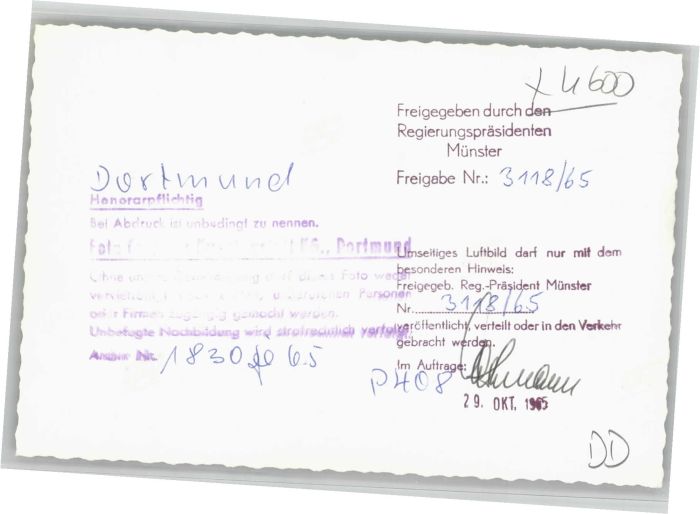 x 4600
Freigegeben durch den
Regierungspräsidenten
Münster
Freigabe Nr.: 3118/65
Dortmund
Honorarpflichtig
Bei Abdruck ist unbedingt zu nennen.
Foto KG., Dortmund
Ohne unsere darf dieses Foto weder
Personen
oder Firmen zugängig gemacht werden.
Unbefugte Nachbildung wird strafrechtlich verfolgt.
Archiv Nr. 1830 65
Umseitiges Luftbild darf nur mit dem
besonderen Hinweis:
Freigegeb. Reg.-Präsident Münster
Nr. 3118/65
veröffentlicht, verteilt oder in den Verkehr
gebracht werden.
Im Auftrage:
P408
29. OKT. 1965
DD